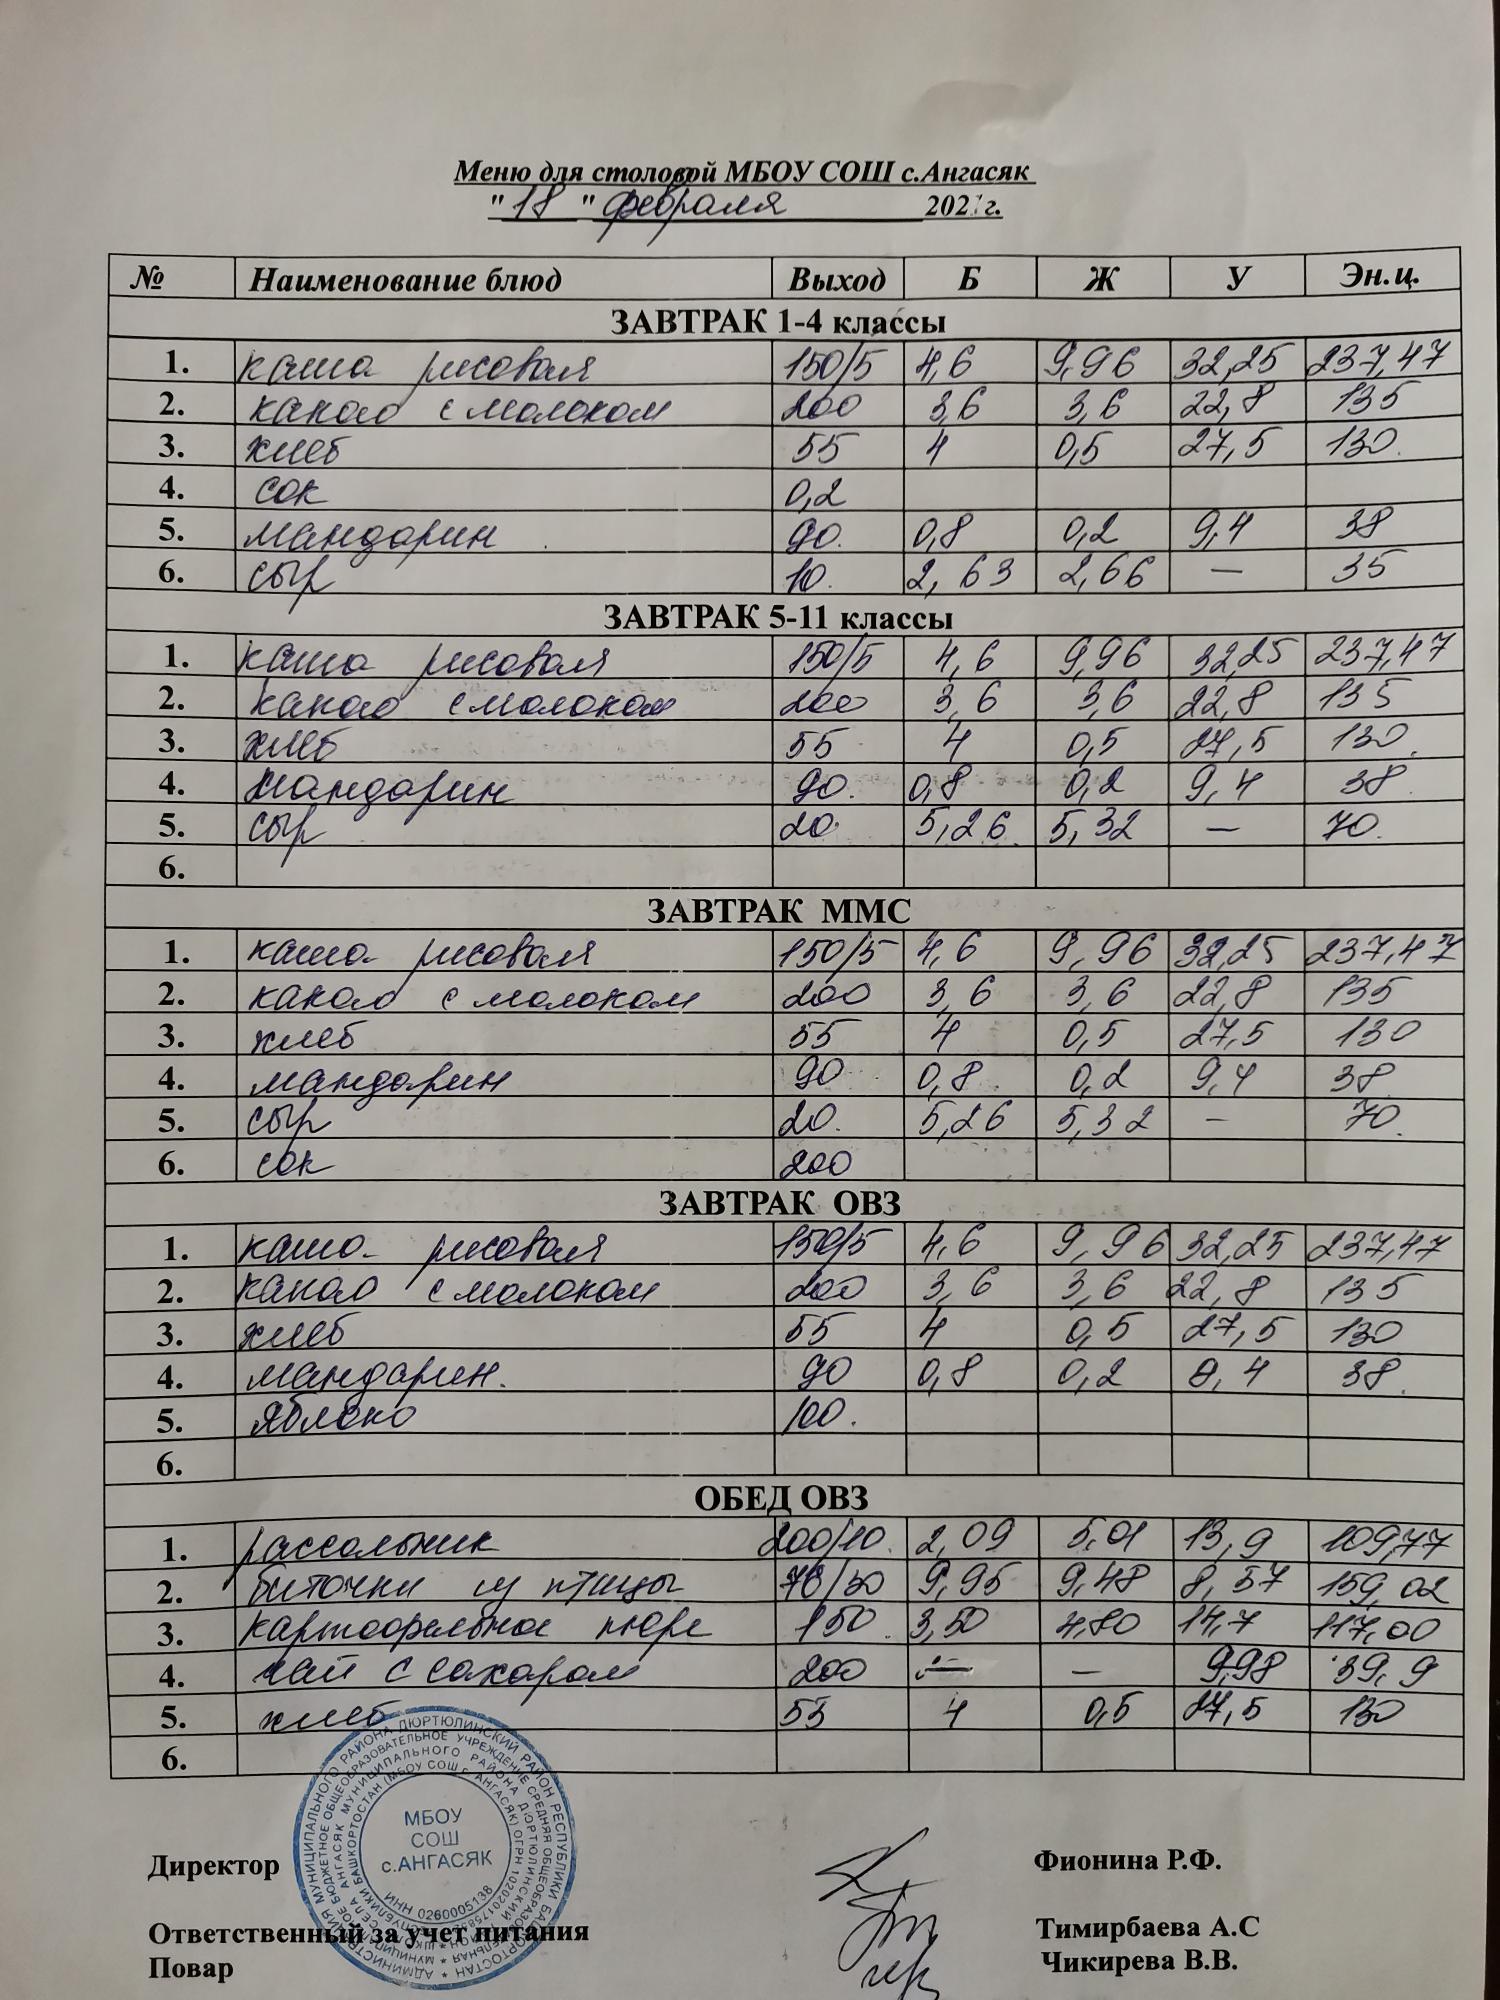 Меню для столовой МБОУ СОШ с.Ангасяк
" 18 " февраля 2021г.
№ Наименование блюд Выход Б Ж У Эн.ц.
ЗАВТРАК 1-4 классы
1. каша рисовая 150/5 4,6 9,96 32,25 237,47
2. какао с молоком 200 3,6 3,6 22,8 135
3. хлеб 55 4 0,5 27,5 130.
4. сок 0,2
5. мандарин 90. 0,8 0,2 9,4 38
6. сыр 10. 2,63 2,66 — 35
ЗАВТРАК 5-11 классы
1. каша рисовая 150/5 4,6 9,96 32,25 237,47
2. какао с молоком 200 3,6 3,6 22,8 135
3. хлеб 55 4 0,5 27,5 130.
4. мандарин 90. 0,8 0,2 9,4 38.
5. сыр 20. 5,26. 5,32 — 70.
6.
ЗАВТРАК ММС
1. каша рисовая 150/5 4,6 9,96 32,25 237,47
2. какао с молоком 200 3,6 3,6 22,8 135
3. хлеб 55 4 0,5 27,5 130
4. мандарин 90 0,8 0,2 9,4 38
5. сыр 20. 5,26 5,32 — 70.
6. сок 200
ЗАВТРАК ОВЗ
1. каша рисовая 150/5 4,6 9,96 32,25 237,47
2. какао с молоком 200 3,6 3,6 22,8 135
3. хлеб 55 4 0,5 27,5 130
4. мандарин. 90 0,8 0,2 9,4 38.
5. яблоко 100.
6.
ОБЕД ОВЗ
1. рассольник 200/10. 2,09 5,01 13,9 109,77
2. биточки из птицы 70/30 9,95 9,48 8,57 159,02
3. картофельное пюре 150. 3,50 4,80 14,7 117,00
4. чай с сахаром 200 — — 9,98 39,9
5. хлеб 55 4 0,5 27,5 130
6.
МБОУ
СОШ
с.АНГАСЯК
ИНН 0260005138
Директор Фионина Р.Ф.
Ответственный за учет питания Тимирбаева А.С
Повар Чикирева В.В.